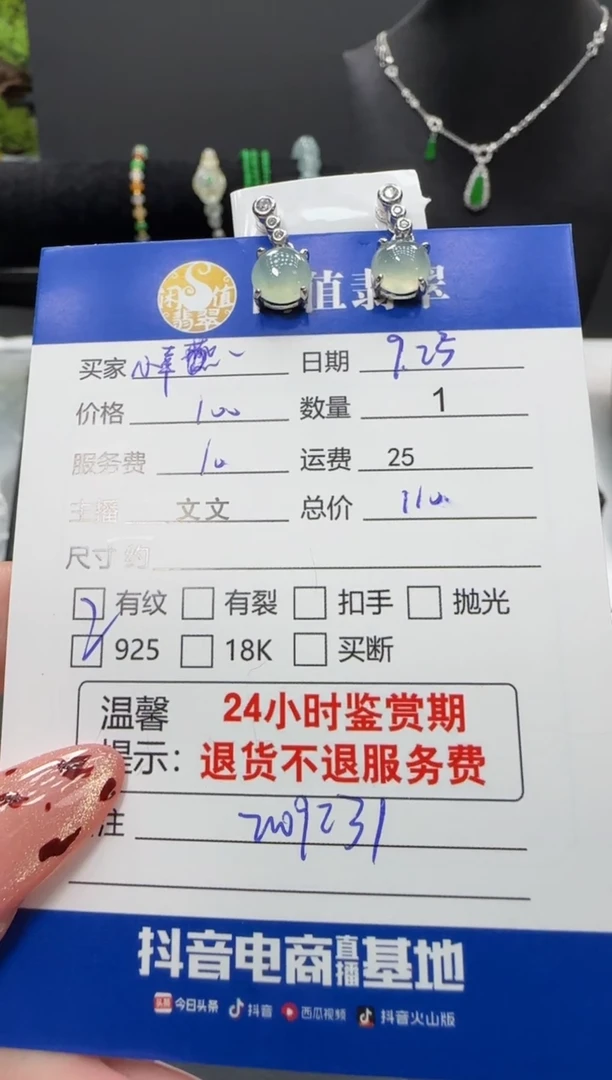 闲值翡翠
值翡翠
买家 日期 9.25
价格 100 数量 1
服务费 10 运费 25
主播 文文 总价 110
尺寸 约
有纹 有裂 扣手 抛光
925 18K 买断
温馨 24小时鉴赏期
提示: 退货不退服务费
注
抖音电商直播基地
头条 今日头条 抖音 西瓜视频 抖音火山版